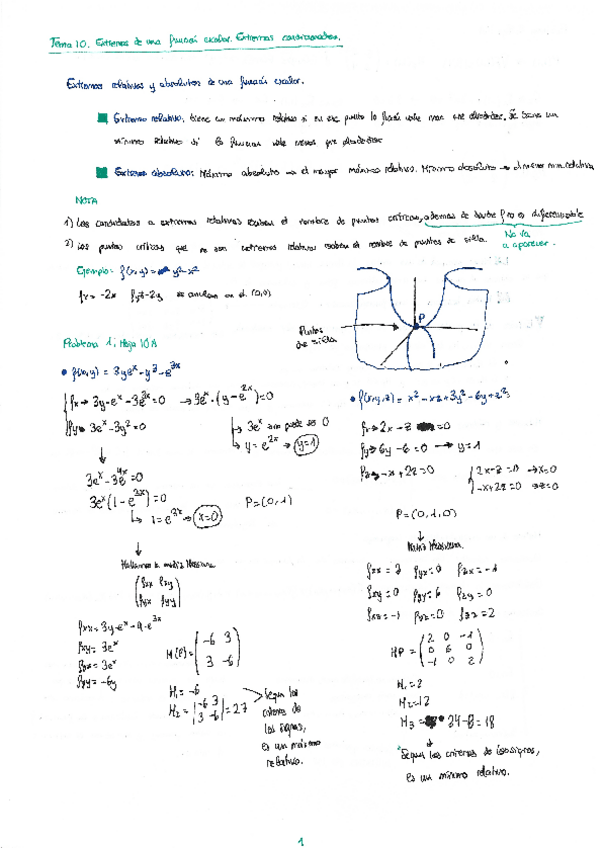 Tema 10. Extremos de una función escalar. Extremos condicionados.
Extremos relativos y absolutos de una función escalar.
Extremo relativo: tiene un máximo relativo si en ese punto la función vale más que alrededor, Se tiene un
mínimo relativo si la función vale menos que alrededor
Extremo absoluto: Máximo absoluto → el mayor máximo relativo. Mínimo absoluto → el menor min relativo
NOTA
1) Los candidatos a extremos relativos reciben el nombre de puntos críticos, además de donde f no es diferenciable
No va a aparecer.
2) Los puntos críticos que no son extremos relativos reciben el nombre de puntos de silla.
Ejemplo: f(x,y) = y²-x²
fx = -2x fy=2y se anulan en el (0,0)
Puntos de silla
P
Problema 1, Hoja 10A
• f(x,y) = 3ye^x - y³ - e^3x
fx → 3y·e^x - 3e^3x = 0 → 3e^x · (y - e^2x) = 0
fy → 3e^x - 3y² = 0
→ 3e^x no puede ser 0
→ y = e^2x → y=1
3e^x - 3e^4x = 0
3e^x (1 - e^3x) = 0
→ 1 = e^3x → x=0
P = (0,1)
Hallamos la matriz Hessiana
(fxx fxy
fyx fyy)
fxx = 3y·e^x - 9·e^3x
fxy = 3e^x
fyx = 3e^x
fyy = -6y
H(P) = (-6 3
3 -6)
H₁ = -6
H₂ = |-6 3
3 -6| = 27
Según los criterios de los signos, es un máximo relativo.
• f(x,y,z) = x² - xz + 3y² - 6y + z²
fx → 2x - z = 0
fy → 6y - 6 = 0 → y=1
fz → -x + 2z = 0
2x - z = 0 → x=0
-x + 2z = 0 → z=0
P = (0,1,0)
Matriz Hessiana.
fxx = 2 fyx = 0 fzx = -1
fxy = 0 fyy = 6 fzy = 0
fxz = -1 fyz = 0 fzz = 2
HP = (2 0 -1
0 6 0
-1 0 2)
H₁ = 2
H₂ = 12
H₃ = 18
Según los criterios de los signos,
es un mínimo relativo.
1